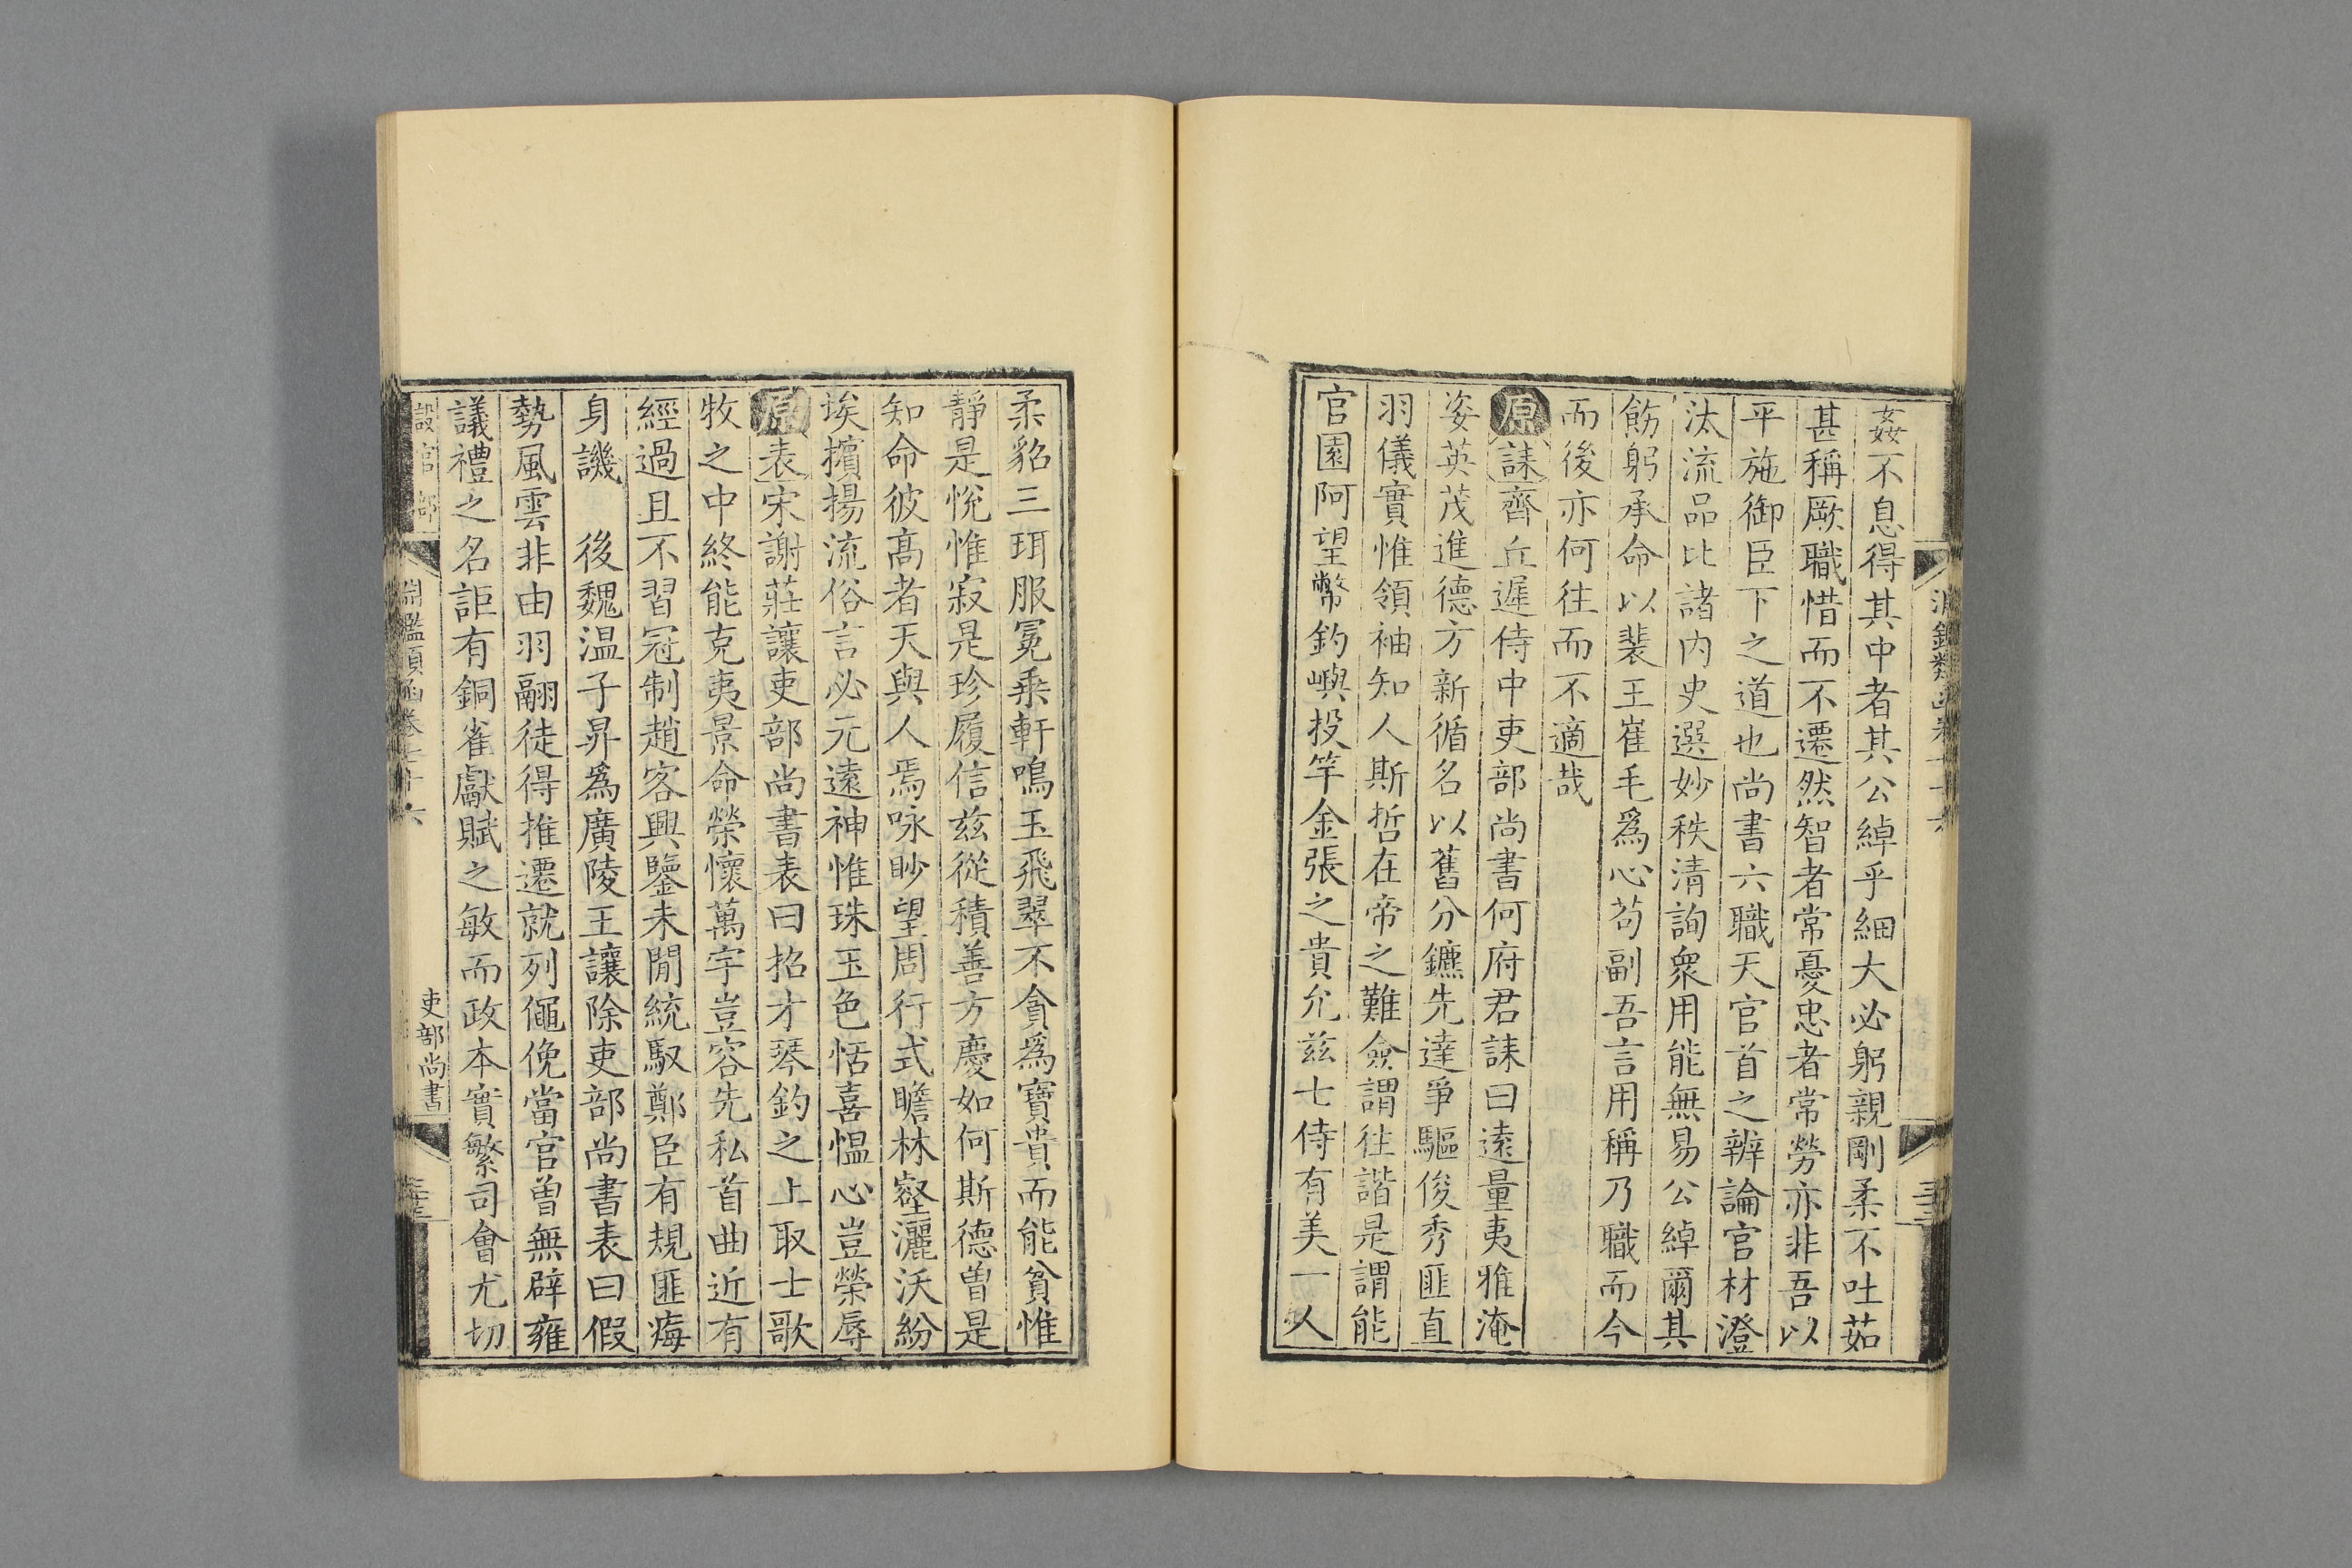 姦不息得其中者其公綽乎細大必躬親剛柔不吐茹
甚稱厥職惜而不遷然智者常憂忠者常勞亦非吾以
平施御臣下之道也尚書六職天官首之辨論官材澄
汰流品比諸内史選妙秩清詢衆用能無易公綽爾其
飭躬承命以裴王崔毛爲心茍副吾言用稱乃職而今
而後亦何往而不適哉
原誄齊丘遲侍中吏部尚書何府君誄曰遠量夷雅淹
姿英茂進德方新循名以舊分鑣先達爭驅俊秀匪直
羽儀實惟領袖知人斯哲在帝之難僉謂往諧是謂能
官園阿望幣釣嶼投竿金張之貴允兹七侍有美一人
柔貂三珥服冕乘軒鳴玉飛翠不貪爲寶貴而能貧惟
靜是悅惟寂是珍履信兹從積善方慶如何斯德曽是
知命彼髙者天與人焉咏眇望周行式瞻林壑灑沃紛
埃擯揚流俗言必元遠神惟珠玉色恬喜愠心豈榮辱
原表宋謝莊讓吏部尚書表曰招才琴釣之上取士歌
牧之中終能克夷景命榮懷萬宇豈容先私首曲近有
經過且不習冠制趙客興鑒未閒統馭鄭臣有規匪痗
身譏　後魏温子昇爲廣陵王讓除吏部尚書表曰假
勢風雲非由羽翮徒得推遷就列僶俛當官曽無辟雍
議禮之名詎有銅雀獻賦之敏而政本實繁司會尤切
設官部　淵鑑類函卷七十六　吏部尚書